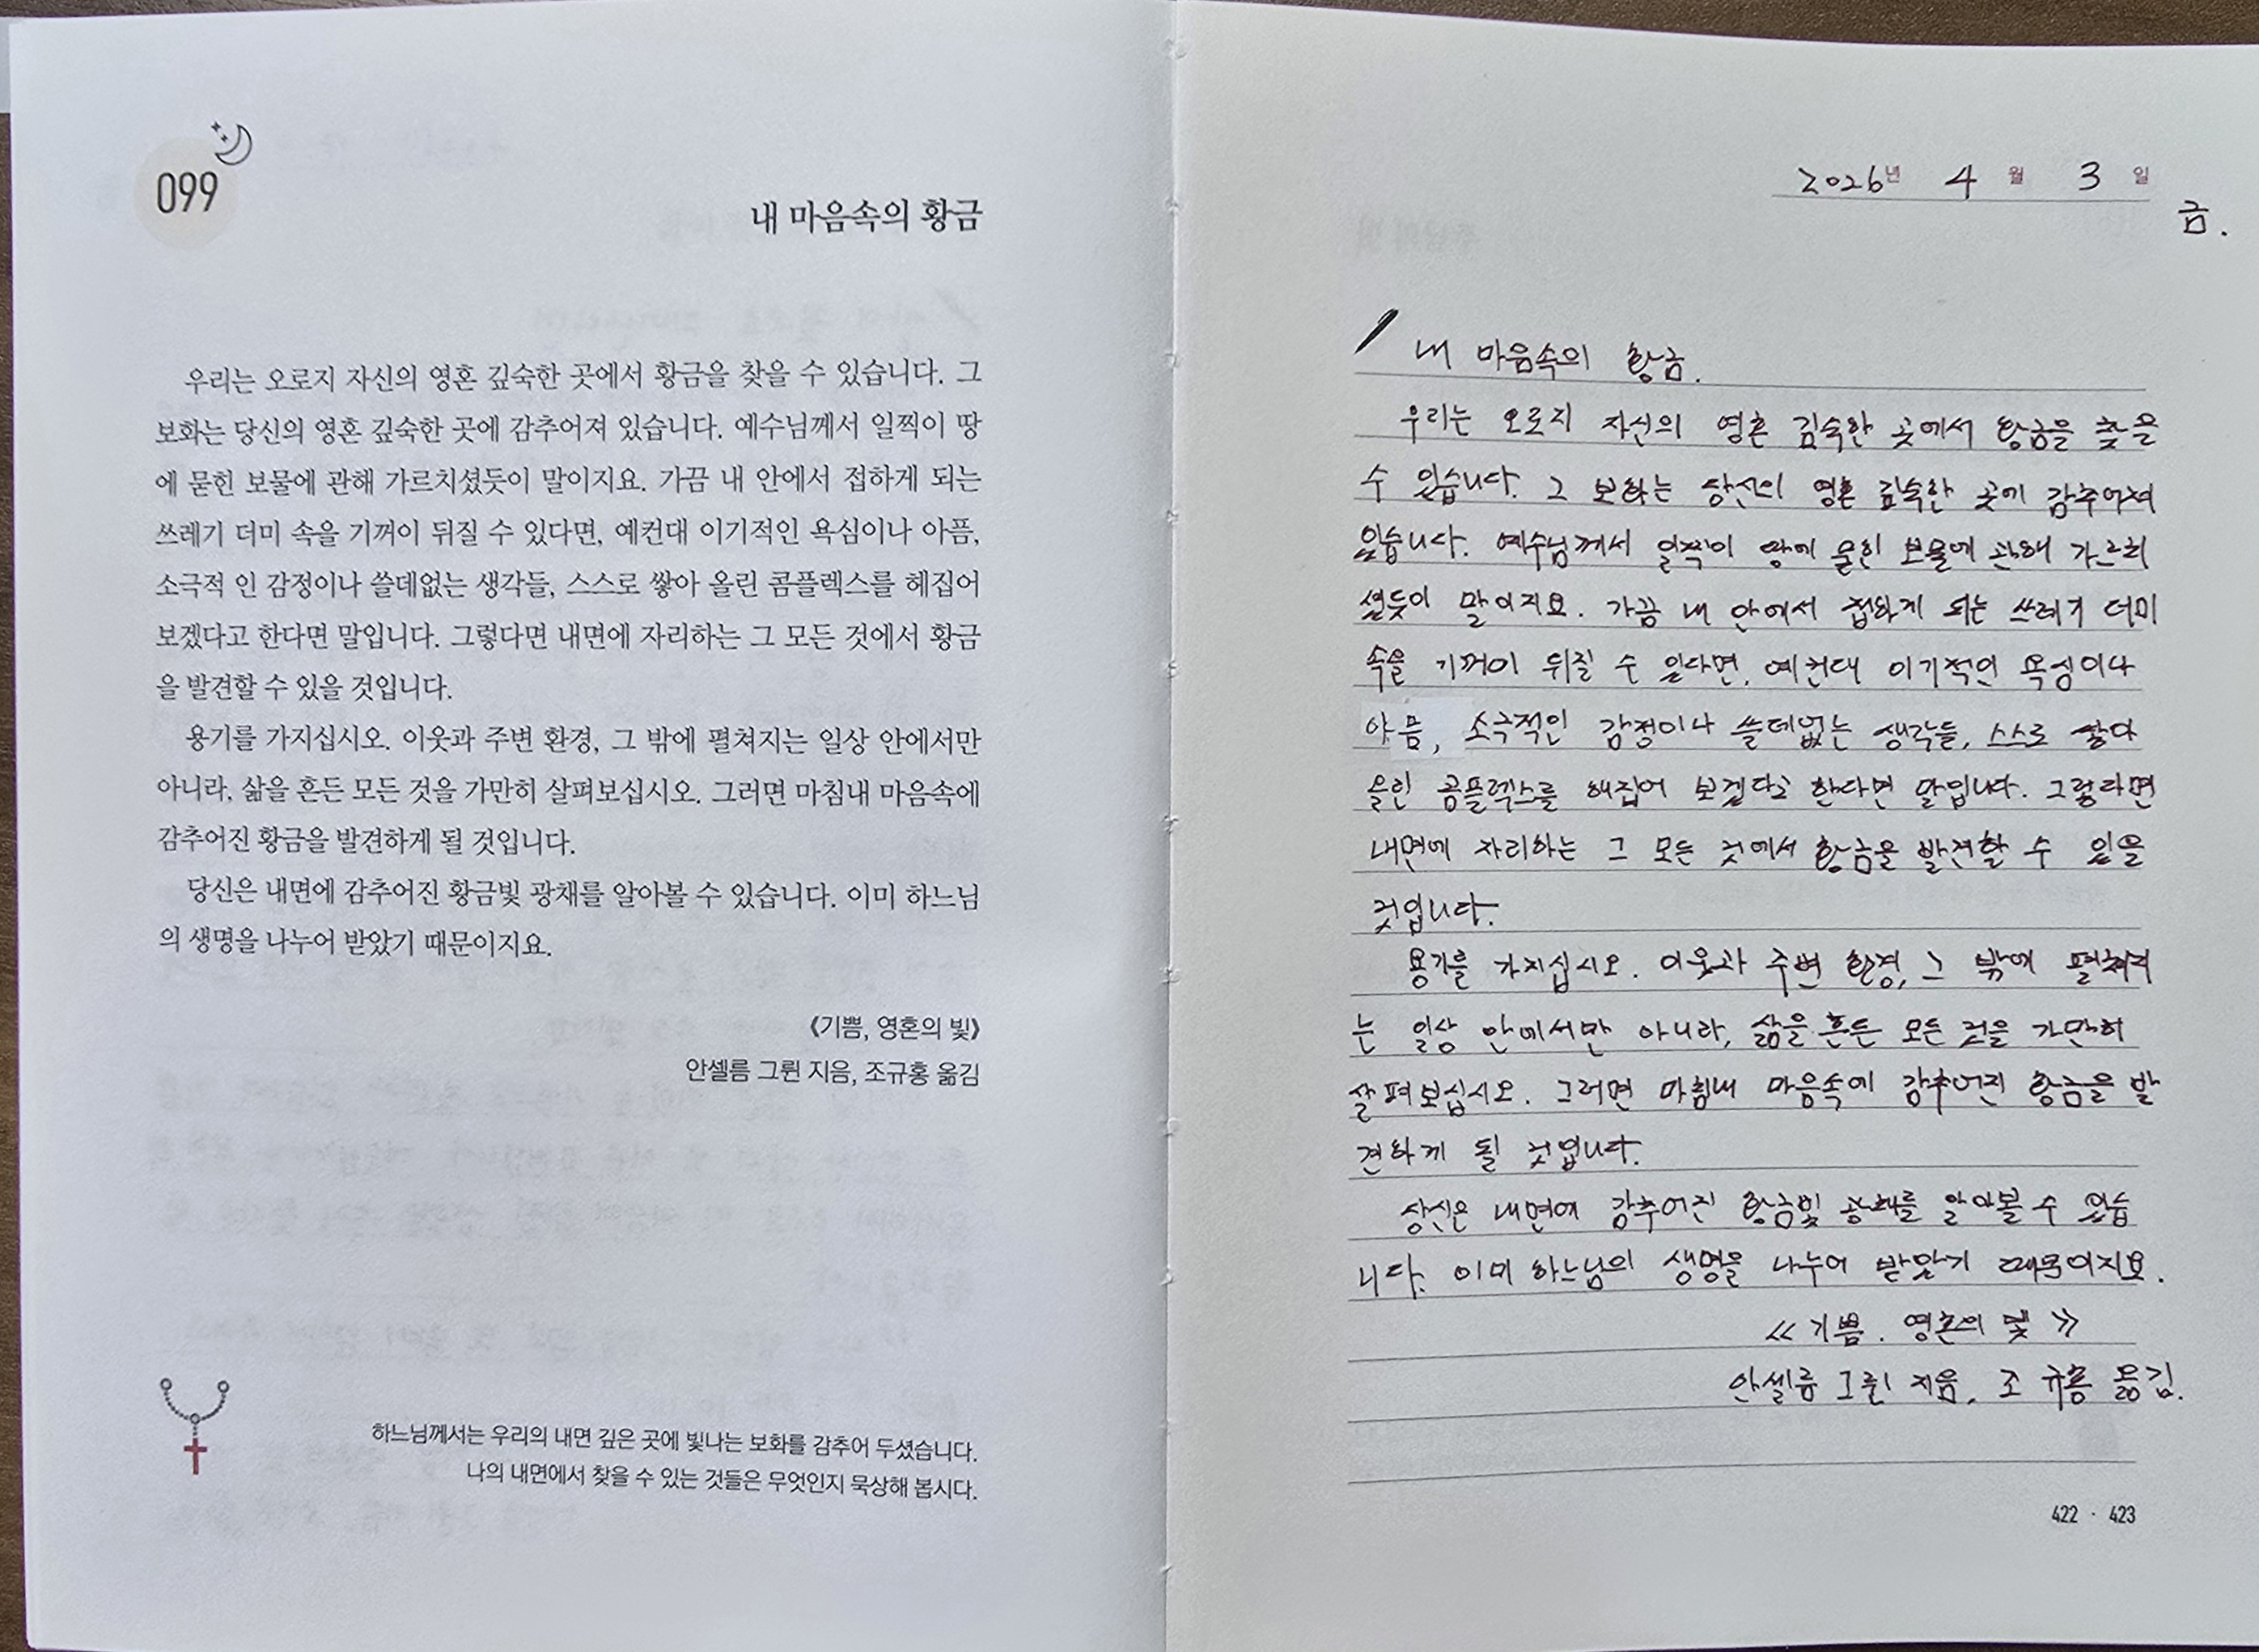 099
내 마음속의 황금
우리는 오로지 자신의 영혼 깊숙한 곳에서 황금을 찾을 수 있습니다. 그
보화는 당신의 영혼 깊숙한 곳에 감추어져 있습니다. 예수님께서 일찍이 땅
에 묻힌 보물에 관해 가르치셨듯이 말이지요. 가끔 내 안에서 접하게 되는
쓰레기 더미 속을 기꺼이 뒤질 수 있다면, 예컨대 이기적인 욕심이나 아픔,
소극적 인 감정이나 쓸데없는 생각들, 스스로 쌓아 올린 콤플렉스를 헤집어
보겠다고 한다면 말입니다. 그렇다면 내면에 자리하는 그 모든 것에서 황금
을 발견할 수 있을 것입니다.
용기를 가지십시오. 이웃과 주변 환경, 그 밖에 펼쳐지는 일상 안에서만
아니라, 삶을 흔든 모든 것을 가만히 살펴보십시오. 그러면 마침내 마음속에
감추어진 황금을 발견하게 될 것입니다.
당신은 내면에 감추어진 황금빛 광채를 알아볼 수 있습니다. 이미 하느님
의 생명을 나누어 받았기 때문이지요.
《기쁨, 영혼의 빛》
안셀름 그륀 지음, 조규홍 옮김
하느님께서는 우리의 내면 깊은 곳에 빛나는 보화를 감추어 두셨습니다.
나의 내면에서 찾을 수 있는 것들은 무엇인지 묵상해 봅시다.
2026년 4월 3일
금.
내 마음속의 황금.
우리는 오로지 자신의 영혼 깊숙한 곳에서 황금을 찾을
수 있습니다. 그 보화는 당신의 영혼 깊숙한 곳에 감추어져
있습니다. 예수님께서 일찍이 땅에 묻힌 보물에 관해 가르치
셨듯이 말이지요. 가끔 내 안에서 접하게 되는 쓰레기 더미
속을 기꺼이 뒤질 수 있다면, 예컨대 이기적인 욕심이나
아픔, 소극적인 감정이나 쓸데없는 생각들, 스스로 쌓아
올린 콤플렉스를 헤집어 보겠다고 한다면 말입니다. 그렇다면
내면에 자리하는 그 모든 것에서 황금을 발견할 수 있을
것입니다.
용기를 가지십시오. 이웃과 주변 환경, 그 밖에 펼쳐지
는 일상 안에서만 아니라, 삶을 흔든 모든 것을 가만히
살펴보십시오. 그러면 마침내 마음속에 감추어진 황금을 발
견하게 될 것입니다.
당신은 내면에 감추어진 황금빛 광채를 알아볼 수 있습
니다. 이미 하느님의 생명을 나누어 받았기 때문이지요.
≪기쁨. 영혼의 빛≫
안셀름 그륀 지음, 조 규홍 옮김.
422 · 423